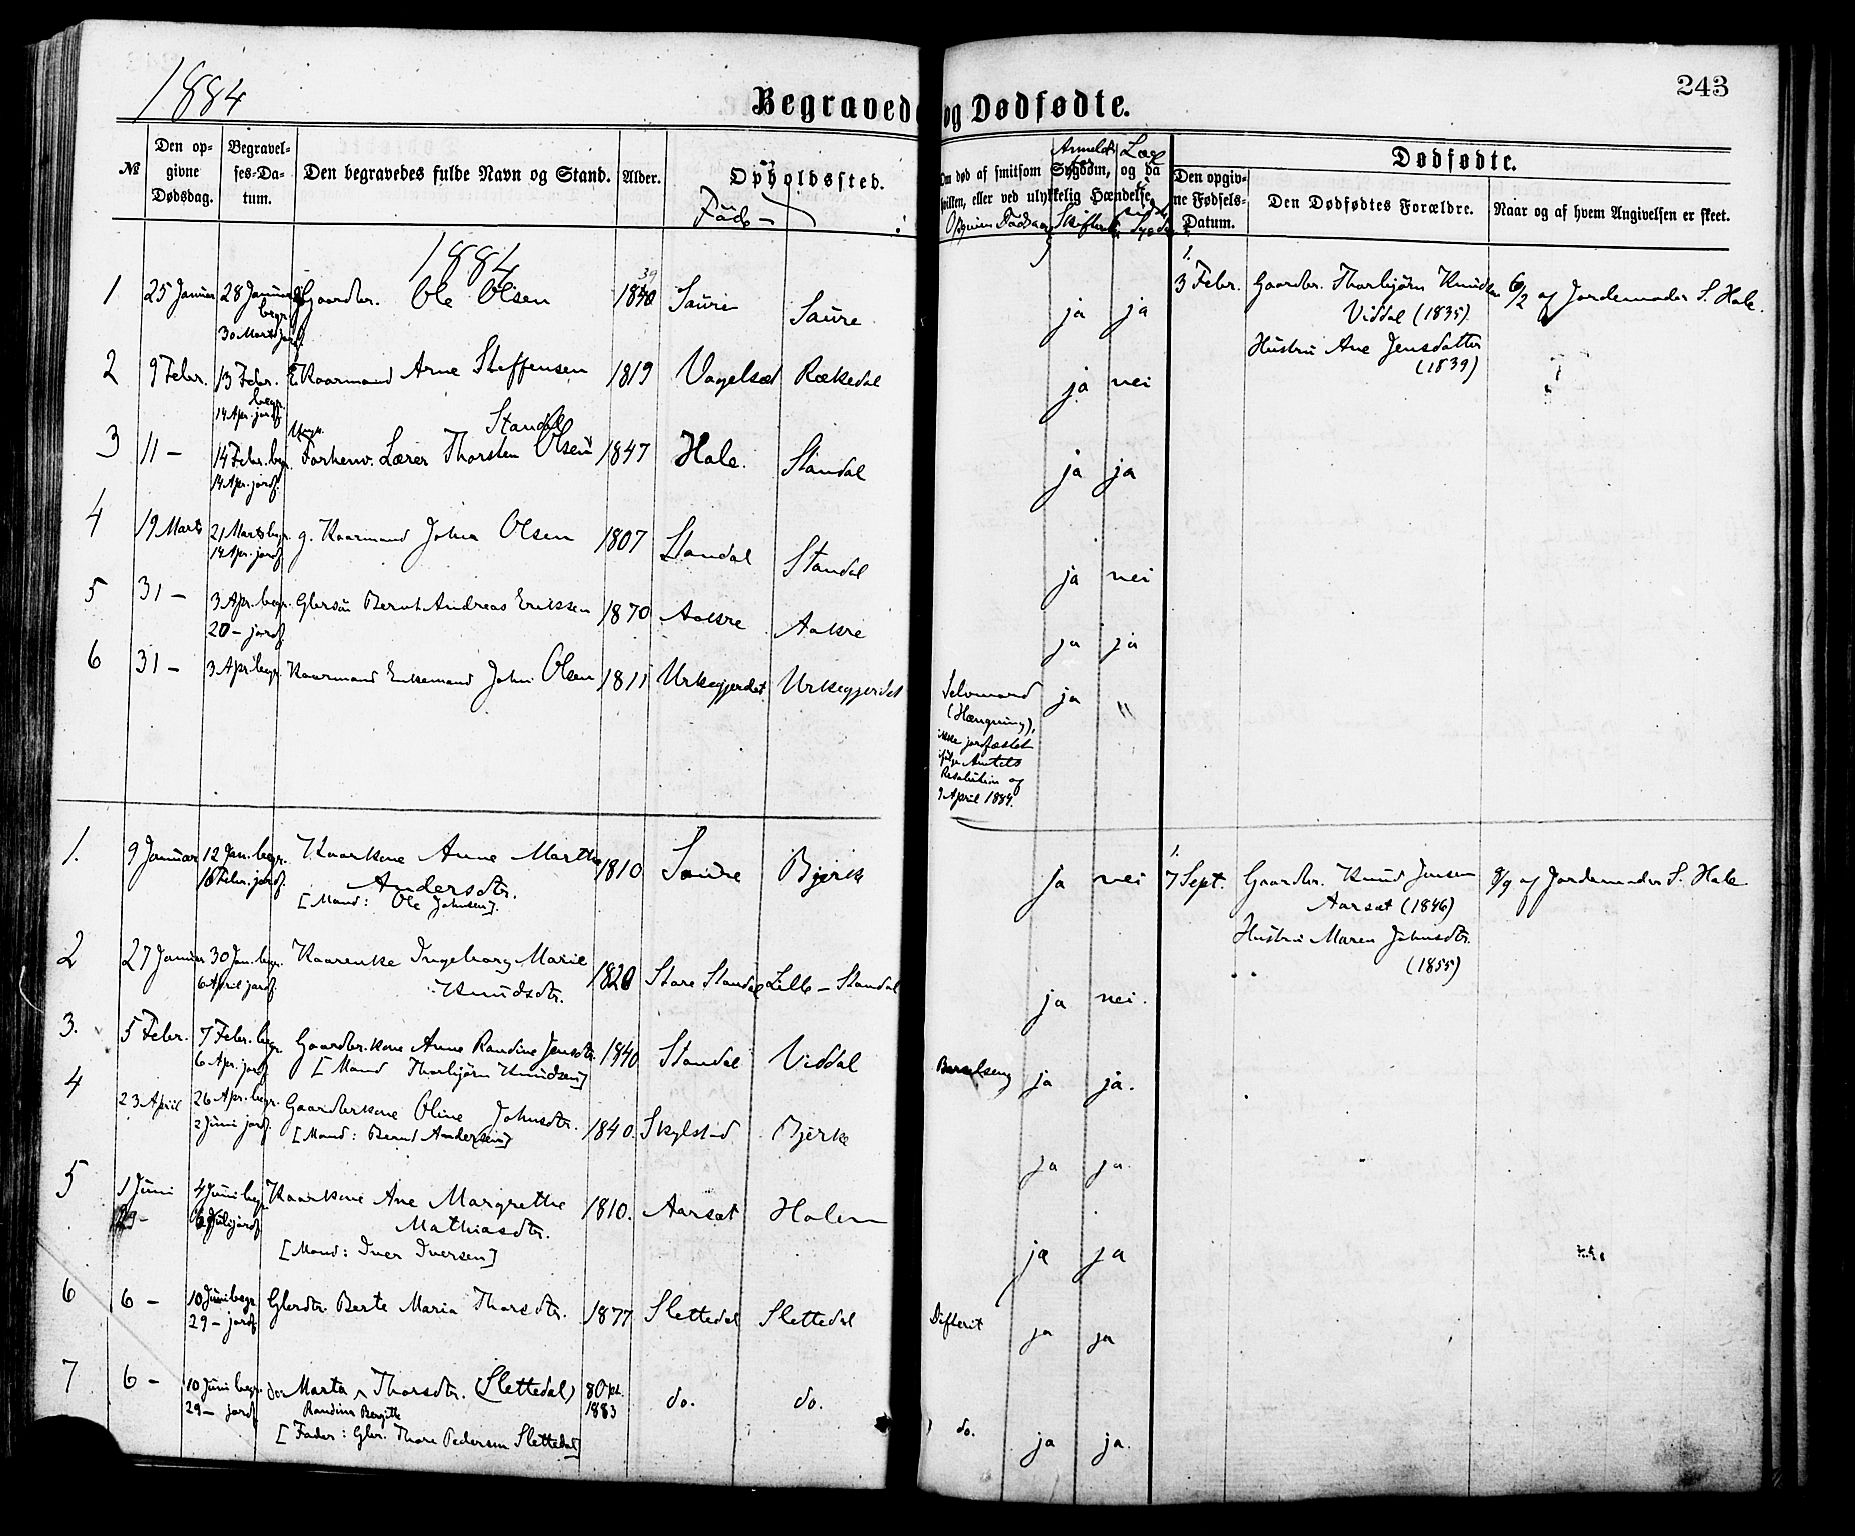 1884
Begravede og Dødfødte.
243
№
Den opgivne Dødsdag.
Begravelses-Datum.
Den begravedes fulde Navn og Stand.
Alder.
Opholdssted.
Føde-
Om død af smitsom Sygdom,
og da
hvilken, eller ved ulykkelig Hændelse.
Dødfødte.
Den opgivne Fødsels-Datum.
Den Dødfødtes Forældre.
Naar og af hvem Angivelsen er skeet.
1884
1 25 Januar 28 Januar begr. 30 Marts jordf. Gaardbr. Ole Olsen 1840 39 Saure Saure ja ja
2 9 Febr. 13 Febr. begr. 14 Apr. jordf. Kaarmand Arne Steffensen 1819 Vogelsæt Rækedal ja nei
3 11 – 14 Febr. begr. 14 Apr. jordf. Ungk. Forhenv. Lærer Thorsten Olsen Standal 1847 Hole Standal ja ja
4 19 Marts 21 Marts begr. 14 Apr. jordf. g. Kaarmand Johan Olsen 1807 Standal Standal ja nei
5 31 – 3 Apr. begr. 20 – jordf. Gbrsøn Bernt Andreas Eriksen 1870 Aakre Aakre ja ja
6 31 – 3 Apr. begr. Kaarmand Enkemand John Olsen 1811 Urkegjerdet Urkegjerdet
Selvmord
(Hængning),
ikke jordfæstet
ifølge Amtets
Resolution af
9 April 1884.
ja "
1.
3 Febr. Gaardbr. Thorbjørn Knudsen 6/2 af Jordemoder S. Hole.
Viddal (1835)
Hustru Ane Jensdatter
(1839)
1. 9 Januar 12 Jan. begr. 16 Febr. jordf. Kaarkone Anne Marthe 1810 Saure Bjørk ja nei
Andersdtr.
[Mand: Ole Johnsen].
2 27 Januar 30 Jan. begr. 6 April jordf. Kaarenke Ingeborg Marie 1820 Store Standal Lille-Standal ja nei.
Knudsdtr.
3. 5 Febr. 7 Febr. begr. 6 Apr. jordf. Gaardbr.kone Anne Randine Jensdtr. 1840 Standal Viddal Barselseng ja ja.
[Mand Thorbjørn Knudsen]
4 23 April 26 Apr. begr. 2 Juni jordf. Gaardbrkone Oline Johnsdtr. 1840. Skylstad Bjerke ja ja.
[Mand: Bernt Andersen]
5 1 Juni 4 Juni begr. Kaarkone Ane Margrethe 1810. Aarsæt Holen ja ja
Mathiasdtr.
[Mand: Iver Iversen]
6 6 – 10 Juni begr. 29 – jordf. Gbrdtr. Berte Maria Thorsdtr. 1877 Slettedal Slettedal Difterit ja ja
7 6 – 10 Juni begr. 29 – jordf. do. Marta Thorsdtr. (Slettedal) 8 Okt. 1883 do. do. do. ja ja.
Randine Bergitte
[Fader: Gbr. Thore Pedersen Slettedal]
1.
7 Sept. Gaardbr. Knud Jensen 8/9 af Jordemoder S. Hole
Aarsæt (1846)
Hustru Maren Johnsdtr.
(1855)